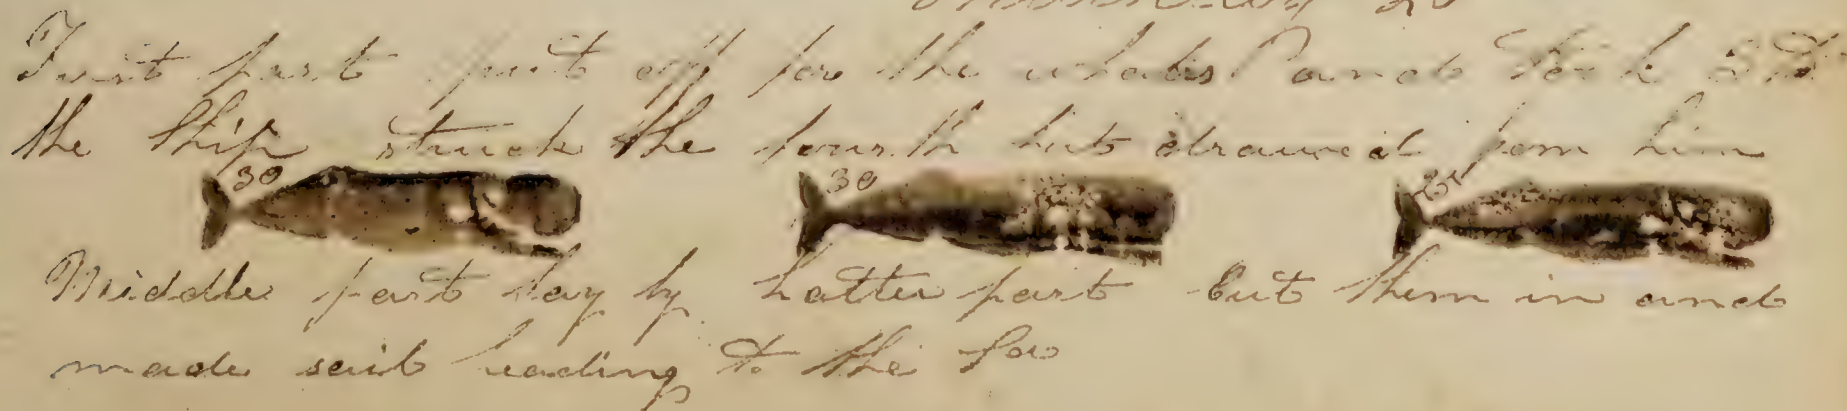 First part put off for the whales and took 3 to
the Ship struck the fourth but drawed from him
30 30
Middle part lay by Latter part Cut them in and
made sail heading to the